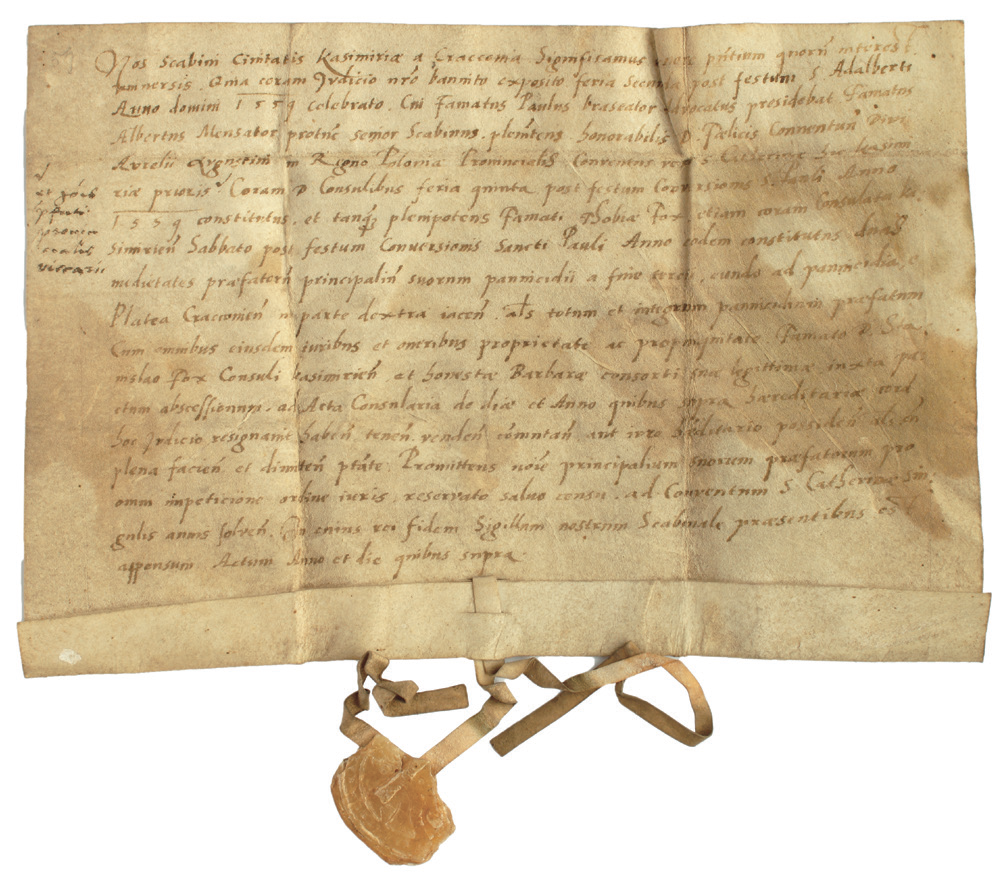 Nos Scabini Ciuitatis Kasimiriæ a Cracouia Significamus quorū interest
vniuersis. Quia coram Iudicio nrō bannito exposito feria Secunda post festum S. Adalberti
Anno domini 1559 celebrato, Cui Famatus Paulus braseator Aduocatus presidebat Famatus
Albertus Mensator protūc senior Scabinus, plenitens honorabilis D. Fælicis Conuentuū Diui
Aurelii Augustini in Regno Poloniæ Prouincialis Conuentus S. Catherinæ
riæ prioris Coram D Consulibus feria quinta post festum Conuersionis S. Pauli Anno
1559 constitutus, et tanq plenipotens Famati Thobiæ Fox, etiam coram Consulatu Ka
simirien̄ Sabbato post festum Conuersionis Sancti Pauli Anno eodem constitutus duas
medietates præfaterū principaliū suorum pannicidii a fine eundo ad pannicidia e
Platea Cracouien̄ in parte dextra iacen̄. als totum et integrum pannicidium præfatum
Cum omnibus eiusdem iuribus et oneribus proprietate ac propinquitate Famato D. Sta
nislao Fox Consuli Kasimirien̄. et honestæ Barbaræ consorti suæ legittimæ iuxta pa
ctum abscessionum. ad Acta Consularia de die et Anno quibus supra hæreditariæ cord
hoc Iudicio resignauit haben̄. tenen̄. venden̄. cōmutan̄. aut iure hæditario possiden̄ als cū
plena facien̄ et dimitten̄ ptāte. Promittens noīe principalium suorum præfatorum pro
omni inpeticione ordine iuris. reseruato saluo censu. ad Conuentum S. Catherinæ sin
gulis annis soluen̄. In cuius rei fidem Sigillum nostrum Scabinale præsentibus est
appensum Actum Anno et die quibus supra